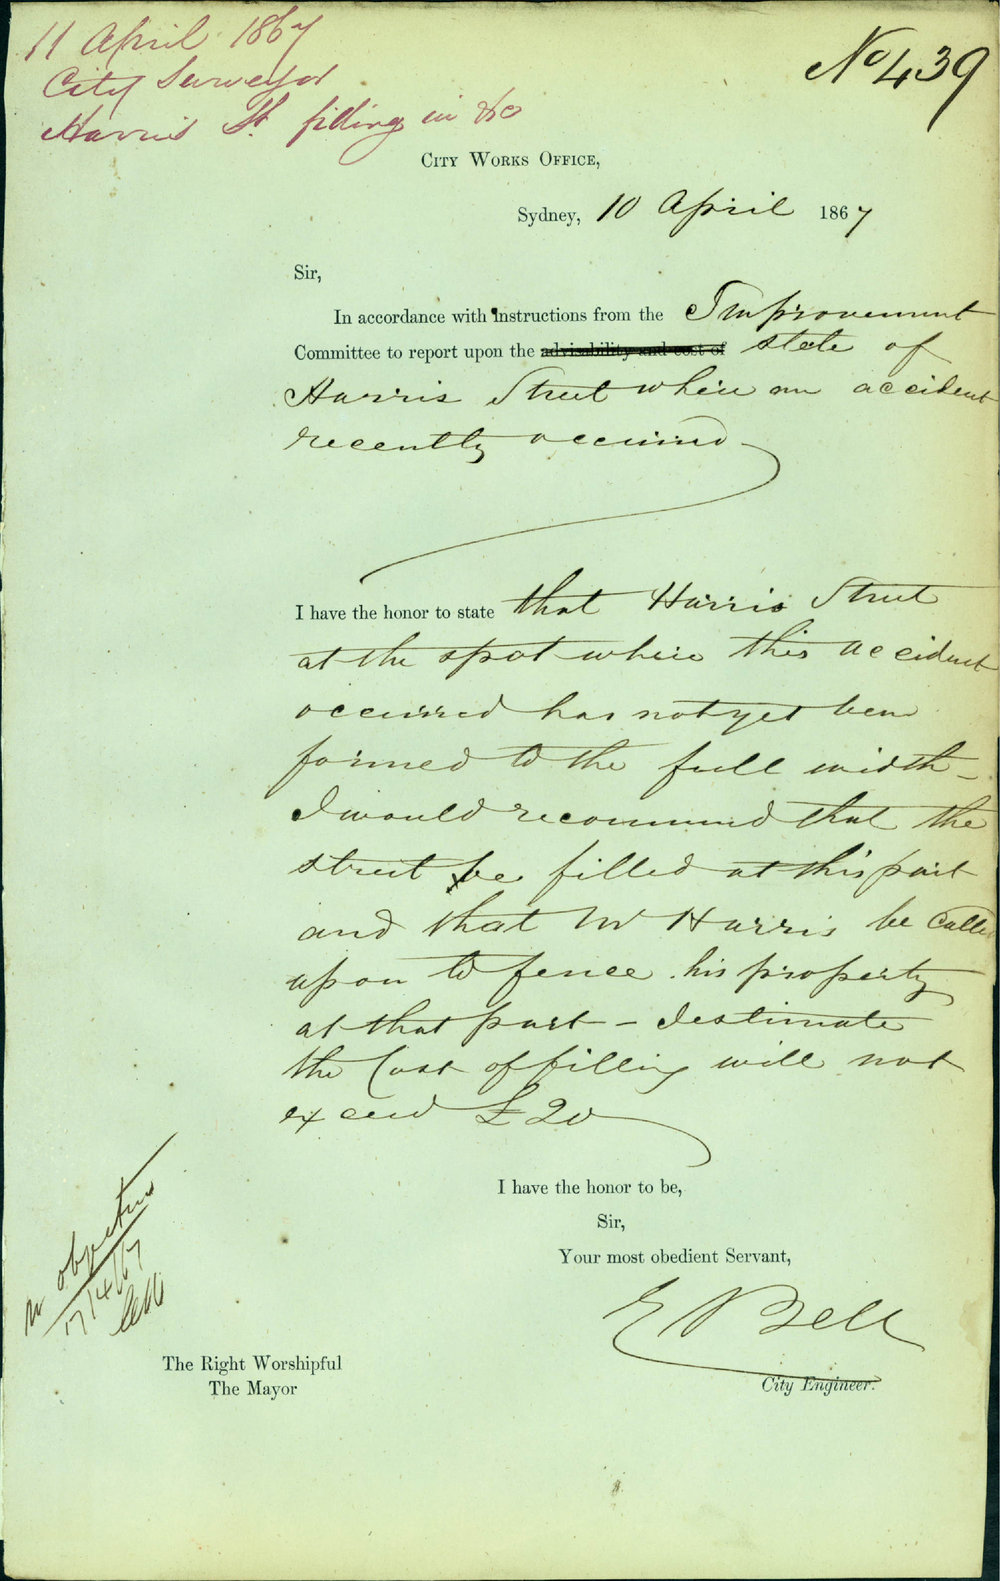 11 April 1867
City Surveyor
Harris St. filling in &c
No 439
City Works Office,
Sydney, 10 April 1867
Sir,
In accordance with Instructions from the Improvement
Committee to report upon the advisability and cost of state of
Harris Street where an accident
recently occurred
I have the honor to state that Harris Street
at the spot where this accident
occurred has not yet been
formed to the full width -
I would recommend that the
street be filled at this part
and that Mr Harris be called
upon to fence his property
at that part - I estimate
the Cost of filling will not
exceed £20
I have the honor to be,
Sir,
Your most obedient Servant,
E Bell
City Engineer.
no objection
17/4/67
The Right Worshipful
The Mayor